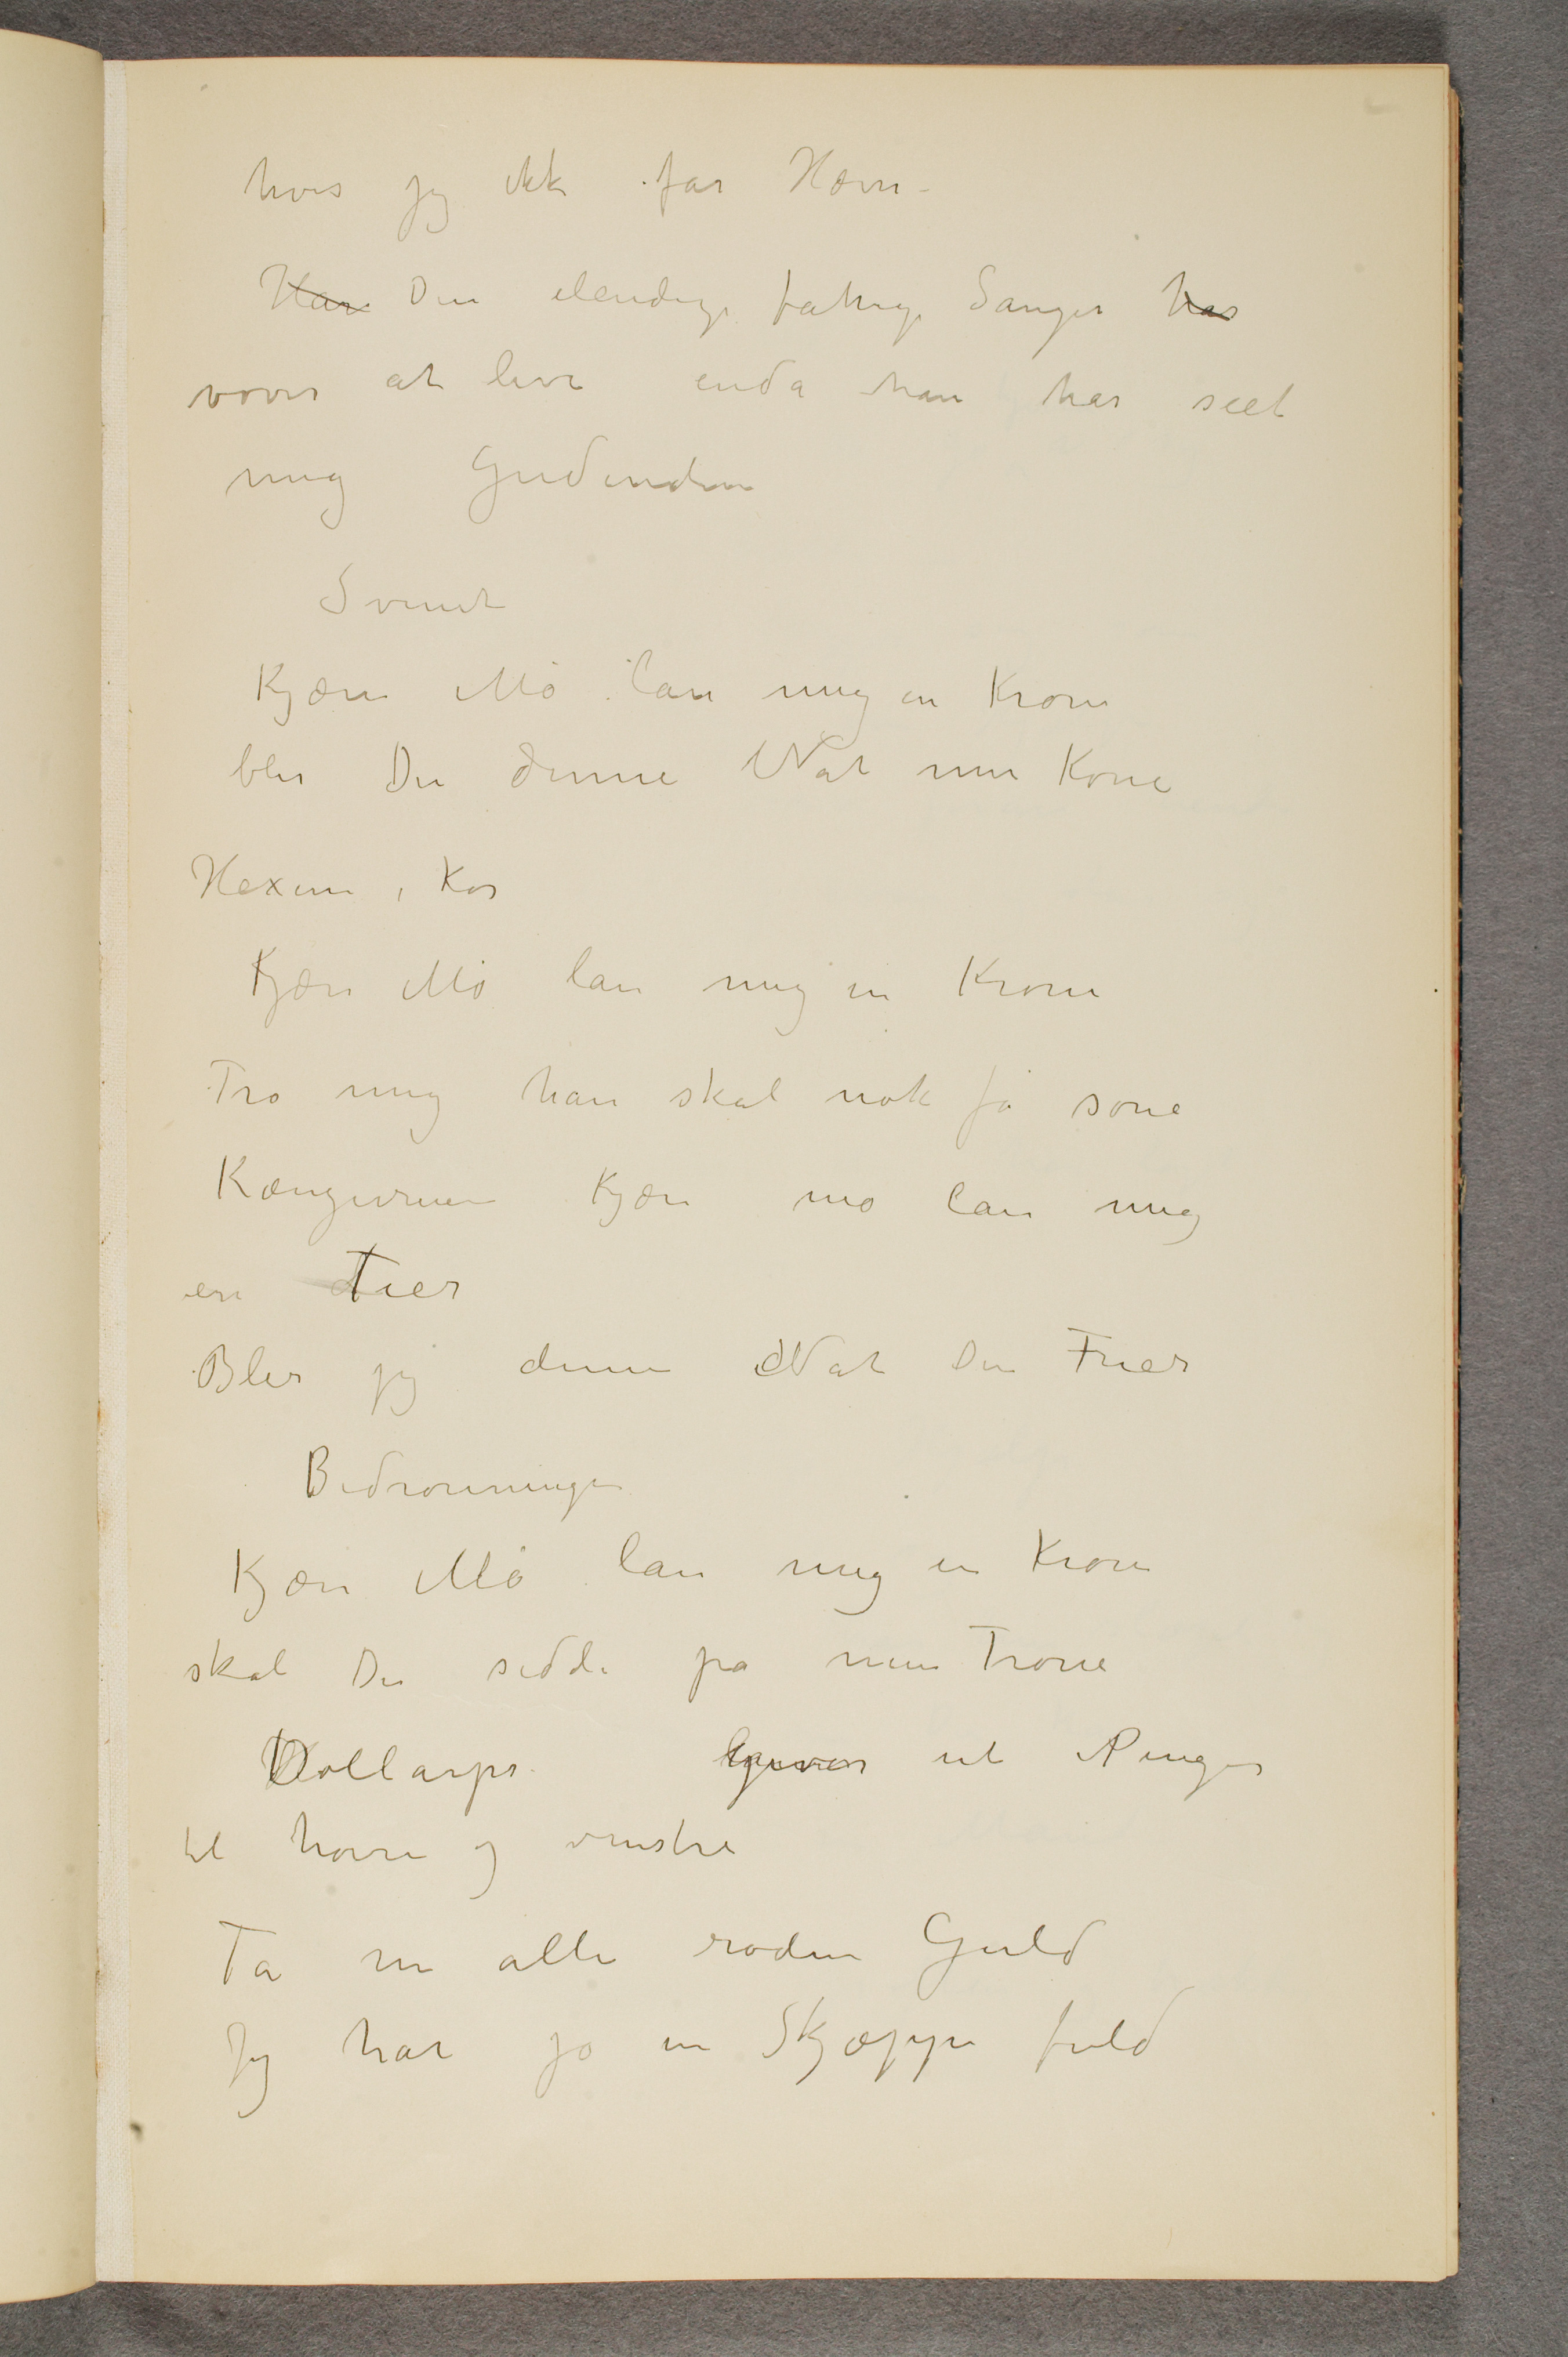 hvis jeg ikke får Hævn –
Har Den elendige fattige Sanger har
vover at leve endå han har seet
mig Gudinden
Svinet
Kjære Mø lån mig en Krone
blir Du denne Nat min Kone
Hexene i Kor
Kjære Mø lån mig en Krone
Tro mig han skal nok få sone
Kængeruen Kjære mø lån mig
en Tier
Blir jeg denne Nat Din Frier
Bidronningen
Kjære Mø lån mig en Krone
skal Du sidde på min Trone
Dollarpr. giver ut Penger
til høire og venstre
Ta nu alle røden Guld
Jeg har jo en Skjæppe fuld